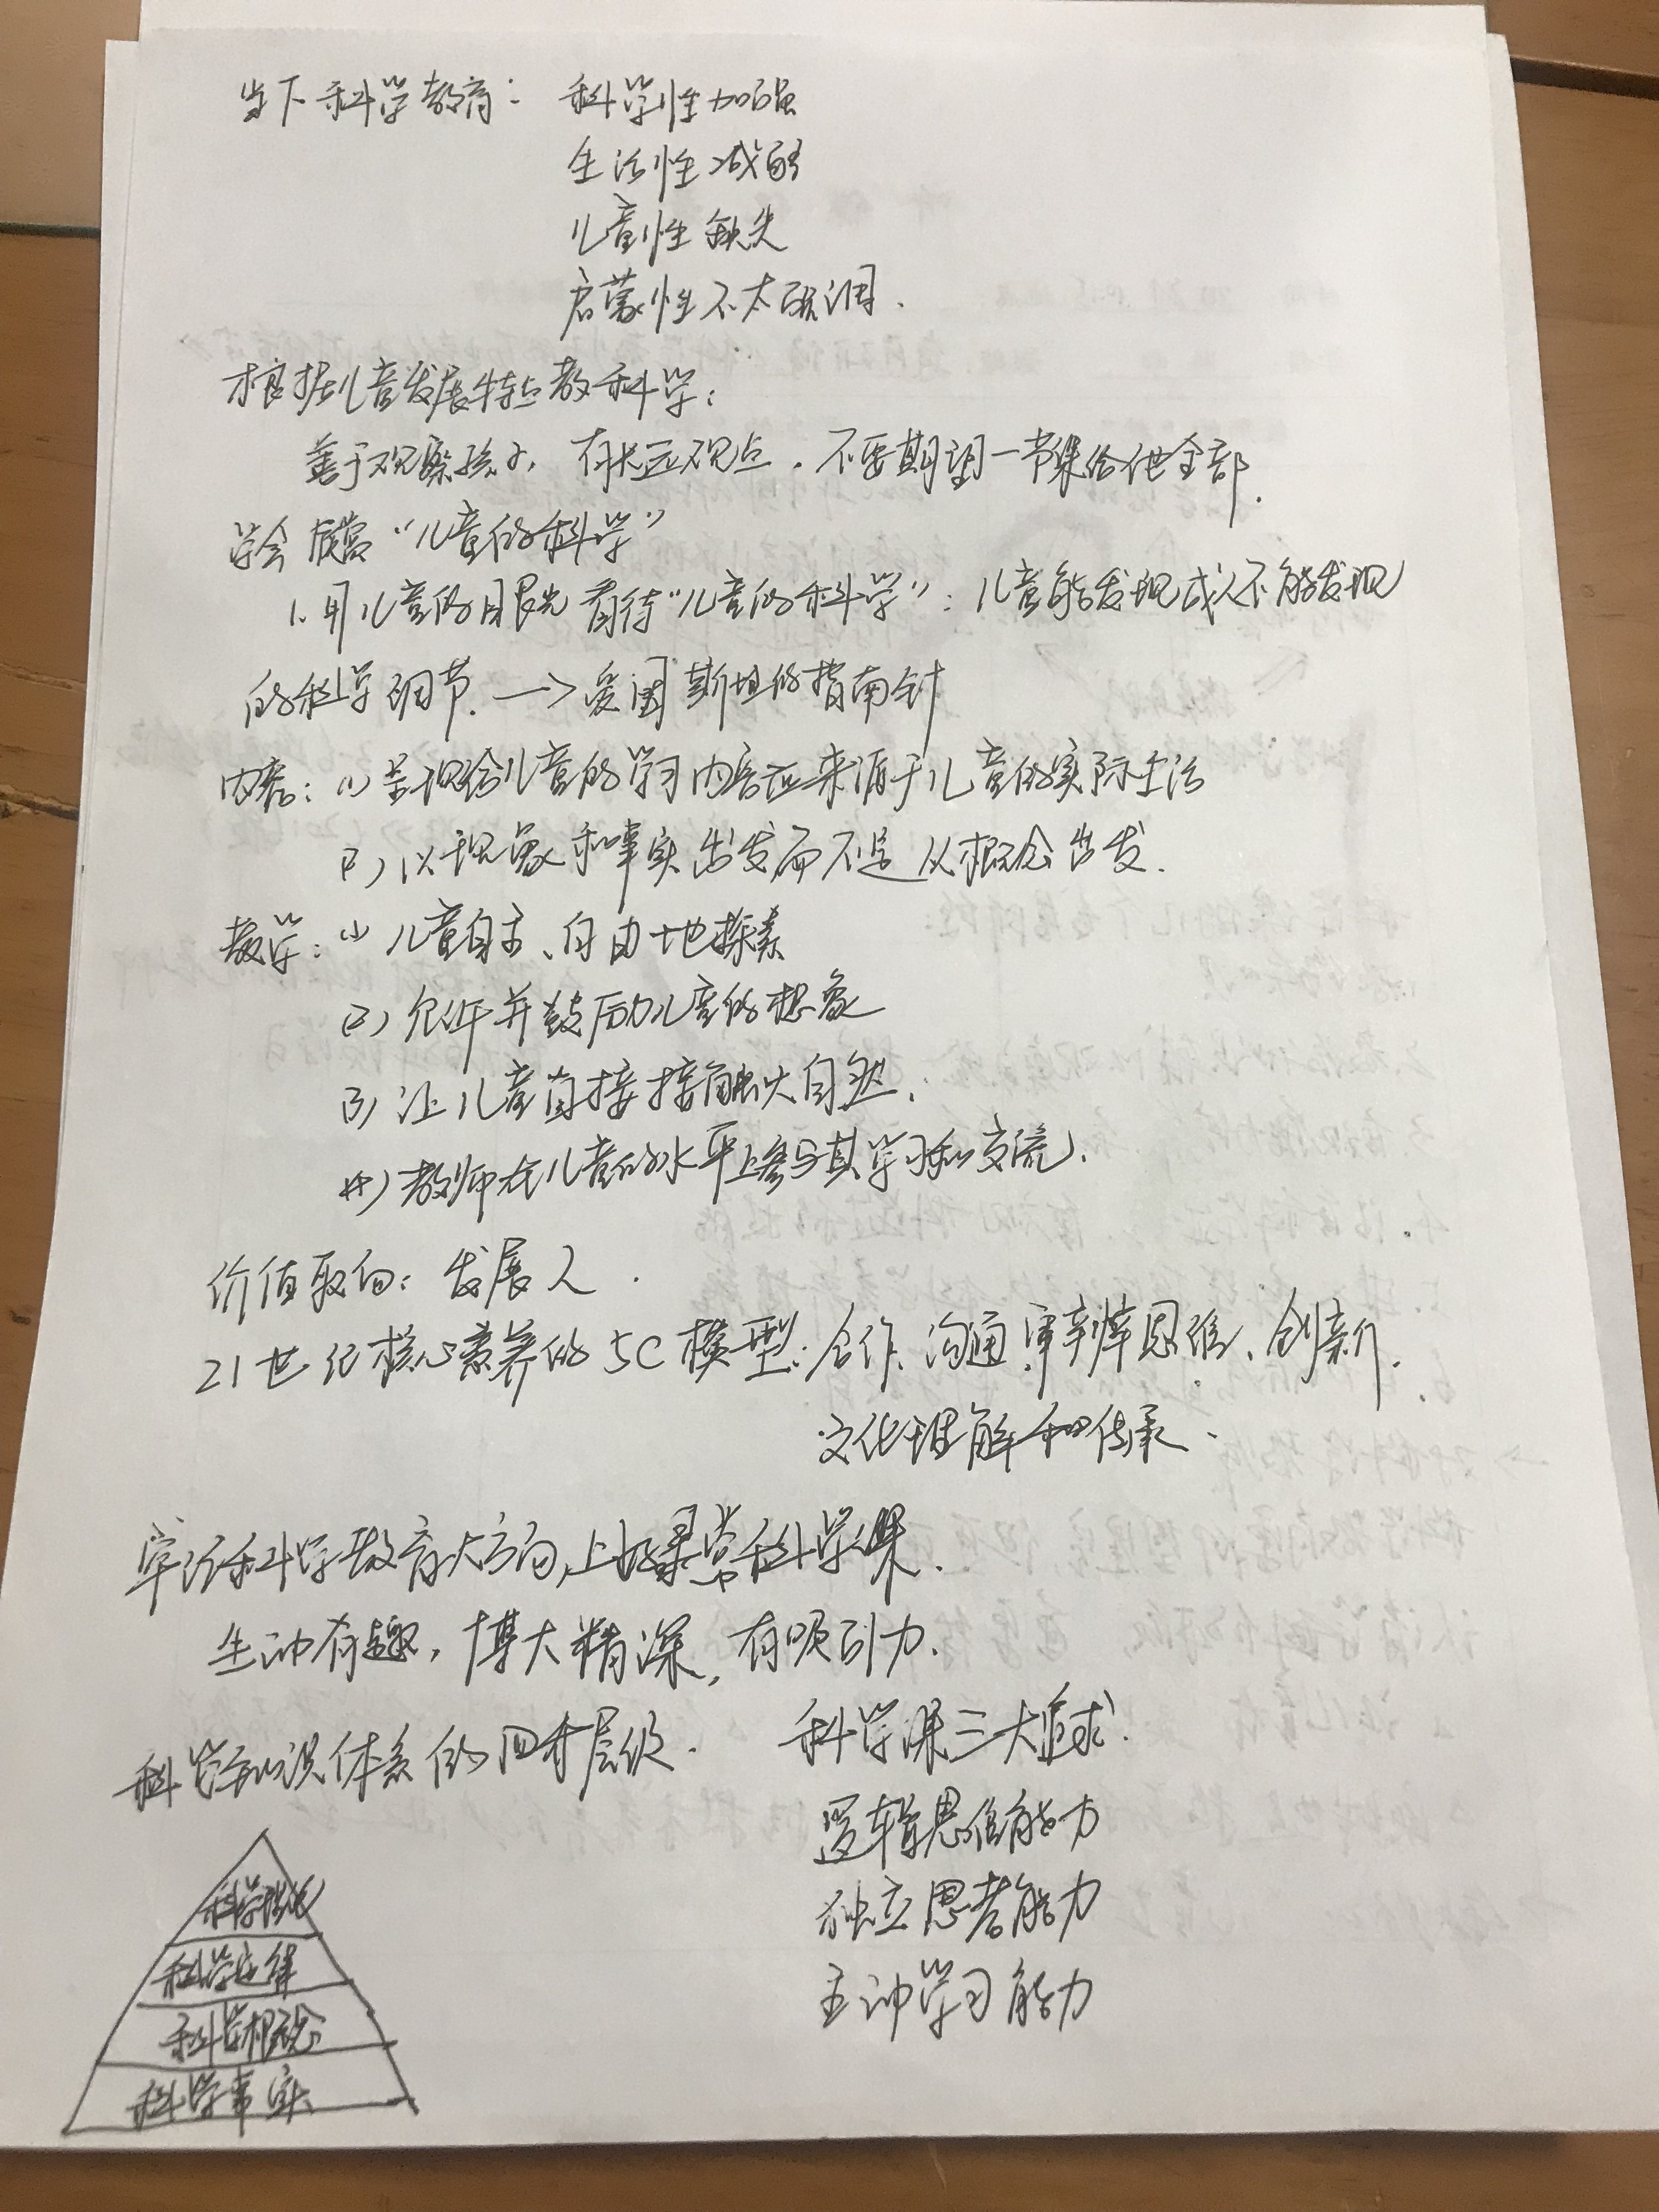 当下科学教育： 科学性加强
生活性减弱
儿童性缺失
启蒙性不太强调.
根据儿童发展特点教科学：
善于观察孩子, 有长远观点. 不要期望一节课给他全部.
学会欣赏“儿童的科学”
1. 用儿童的眼光看待“儿童的科学”：儿童能发现成人不能发现
的科学细节. —> 爱因斯坦的指南针
内容：(1) 呈现给儿童的学习内容应来源于儿童的实际生活
(2) 从现象和事实出发而不是从概念出发.
教学：(1) 儿童自主、自由地探索
(2) 允许并鼓励儿童的想象
(3) 让儿童直接接触大自然.
(4) 教师在儿童的水平上参与其学习和交流.
价值取向：发展人.
21世纪核心素养的5C模型：合作、沟通、审辩思维、创新.
文化理解和传承.
牢记科学教育大方向, 上好寻常科学课.
生动有趣, 博大精深, 有吸引力.
科学知识体系的四个层级. 科学课三大追求.
逻辑思维能力
独立思考能力
主动学习能力
科学理论
科学定律
科学概念
科学事实